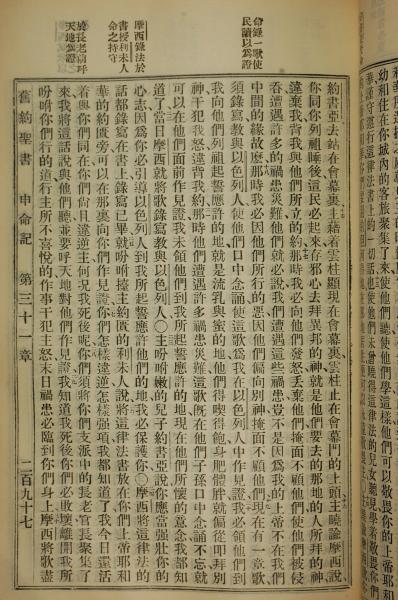 幼和住在你城內的客旅聚集了來使他們聽使他們學這樣他們可以敬畏你們的上帝耶和
華謹守遵行這律法書上的一切話也使他們未曾曉得這律法的兒女聽見學着敬畏你們
命錄一歌使
民讀以爲證
摩西錄法於
書授利未人
命之持守
長老前呼
天地爲證
約書亞去站在會幕裏主藉着雲柱顯現在會幕裏雲柱止在會幕門的上頭主曉諭摩西說
你同你列祖睡後這民必起來存邪心去拜異邦的神就是他們要去的那地的人所拜的神
違棄我背我與他們所立的約那時我必向他們發怒丟棄他們掩面不顧他們使他們被侵
吞遭遇許多的禍患災難他們就必說我們遭遇這些禍患豈不是因爲我的上帝不在我們
中間的緣故麽那時我必因他們所行的惡因他們偏向別神掩面不顧他們現在有一章歌
須錄寫教與以色列人使他們口中念誦使這歌爲我在以色列人中作見證我必領他們到
我向他們列祖起誓應許的地就是流乳與蜜的地他們得喫得飽身肥體胖就偏從叩拜別
神干犯我怒違背我約那時他們遭遇許多禍患災難這歌旣在他們子孫口中念誦不忘就
可以在他們面前作見證我未領他們到我所起誓應許的地現在他們所懷的意念我都知
道了當日摩西就將歌錄寫教與以色列人○主吩咐嫩的兒子約書亞說你應當强壯你的
心志因爲你必引導以色列人到我所起誓應許他們的地我必保護你○摩西將這律法的
話都錄寫在書上錄寫已畢就吩咐擡主約匱的利未人說將這律法書放在你們上帝耶和
華的約匱旁可以在那裏向你們作見證你們怎樣違逆怎樣强項我都知道了我今日還活
着與你們同在你們尙且違逆主何況我死後呢你們須將你們支派中的長老官長聚集了
來我將這話說與他們聽並要呼天地對他們作見證我知道我死後你們必敗壞離開我所
吩咐你們行的道行主所不喜悅的作事干犯主怒末日禍患必臨到你們身上摩西將歌盡
舊約聖書 申命記 第三十一章 二百九十七